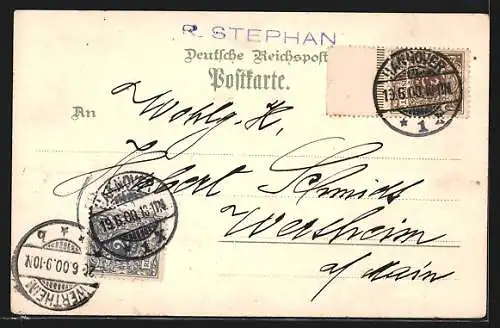 R. STEPHAN
Deutsche Reichspost
Postkarte.
An
Wohlg. H.
Hubert Schmidt
Wertheim
a/Main
HANNOVER
19.6.00.10-11N.
* 1 *
HANNOVER
19.6.00.10-11N.
* 1 *
WERTHEIM
20.6.00.9-10N.
* b *